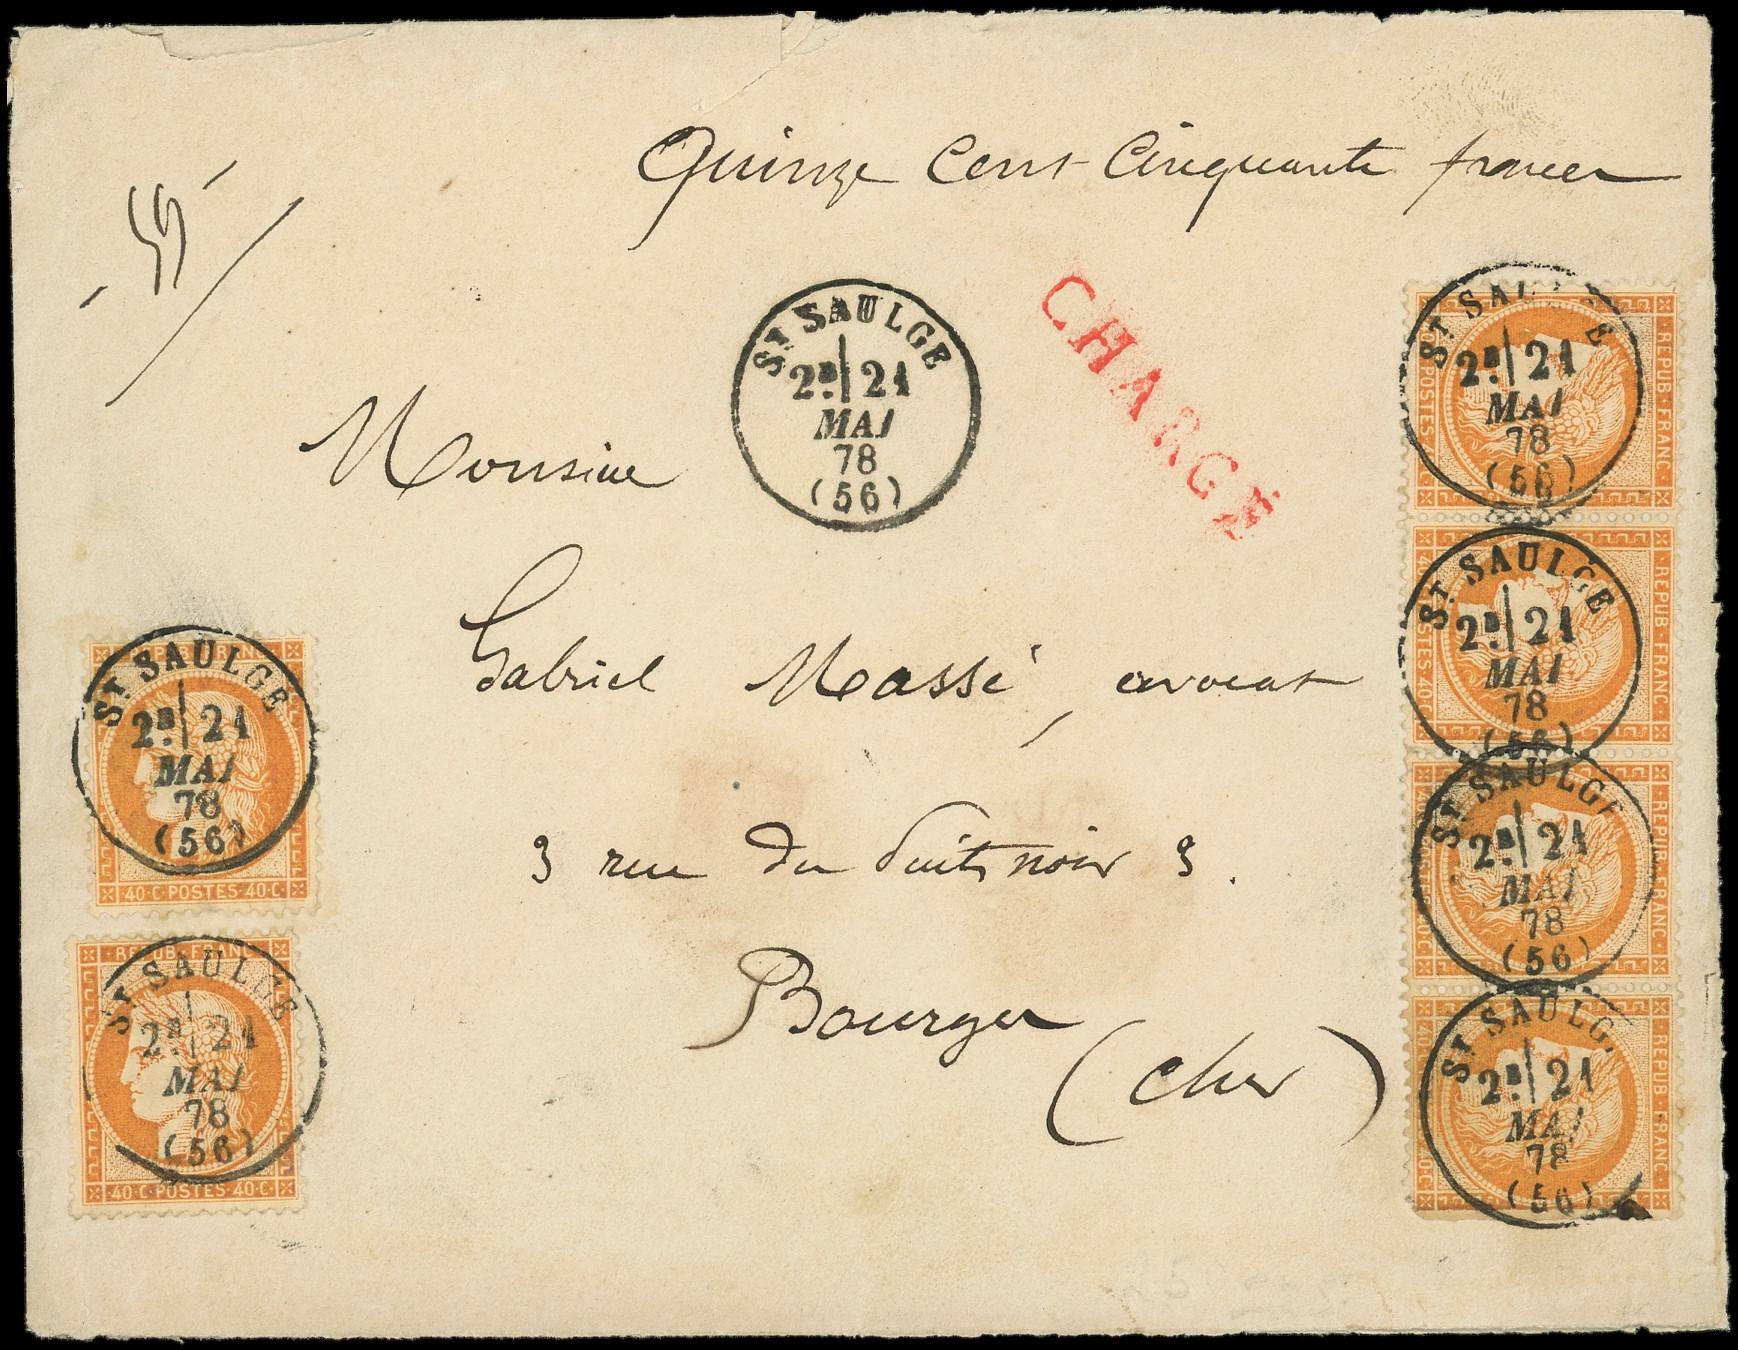 Quinze Cent Cinquante francs
ST SAULGE
2E. 21
MAI
78
(56)
CHARGÉ
Monsieur
Gabriel Massé, avocat
3 rue du Puits noir 3.
Bourges
(Cher)
REPUB·FRANC
ST SAULGE
2E. 21
MAI
78
(56)
40·C·POSTES·40·C
REPUB·FRANC
ST SAULGE
2E. 21
MAI
78
(56)
40·C·POSTES·40·C
ST SAULGE
2E. 21
MAI
78
(56)
REPUB·FRANC
ST SAULGE
2E. 21
MAI
78
(56)
REPUB·FRANC
40·C·POSTES·40·C
ST SAULGE
2E. 21
MAI
78
(56)
REPUB·FRANC
ST SAULGE
2E. 21
MAI
78
(56)
REPUB·FRANC